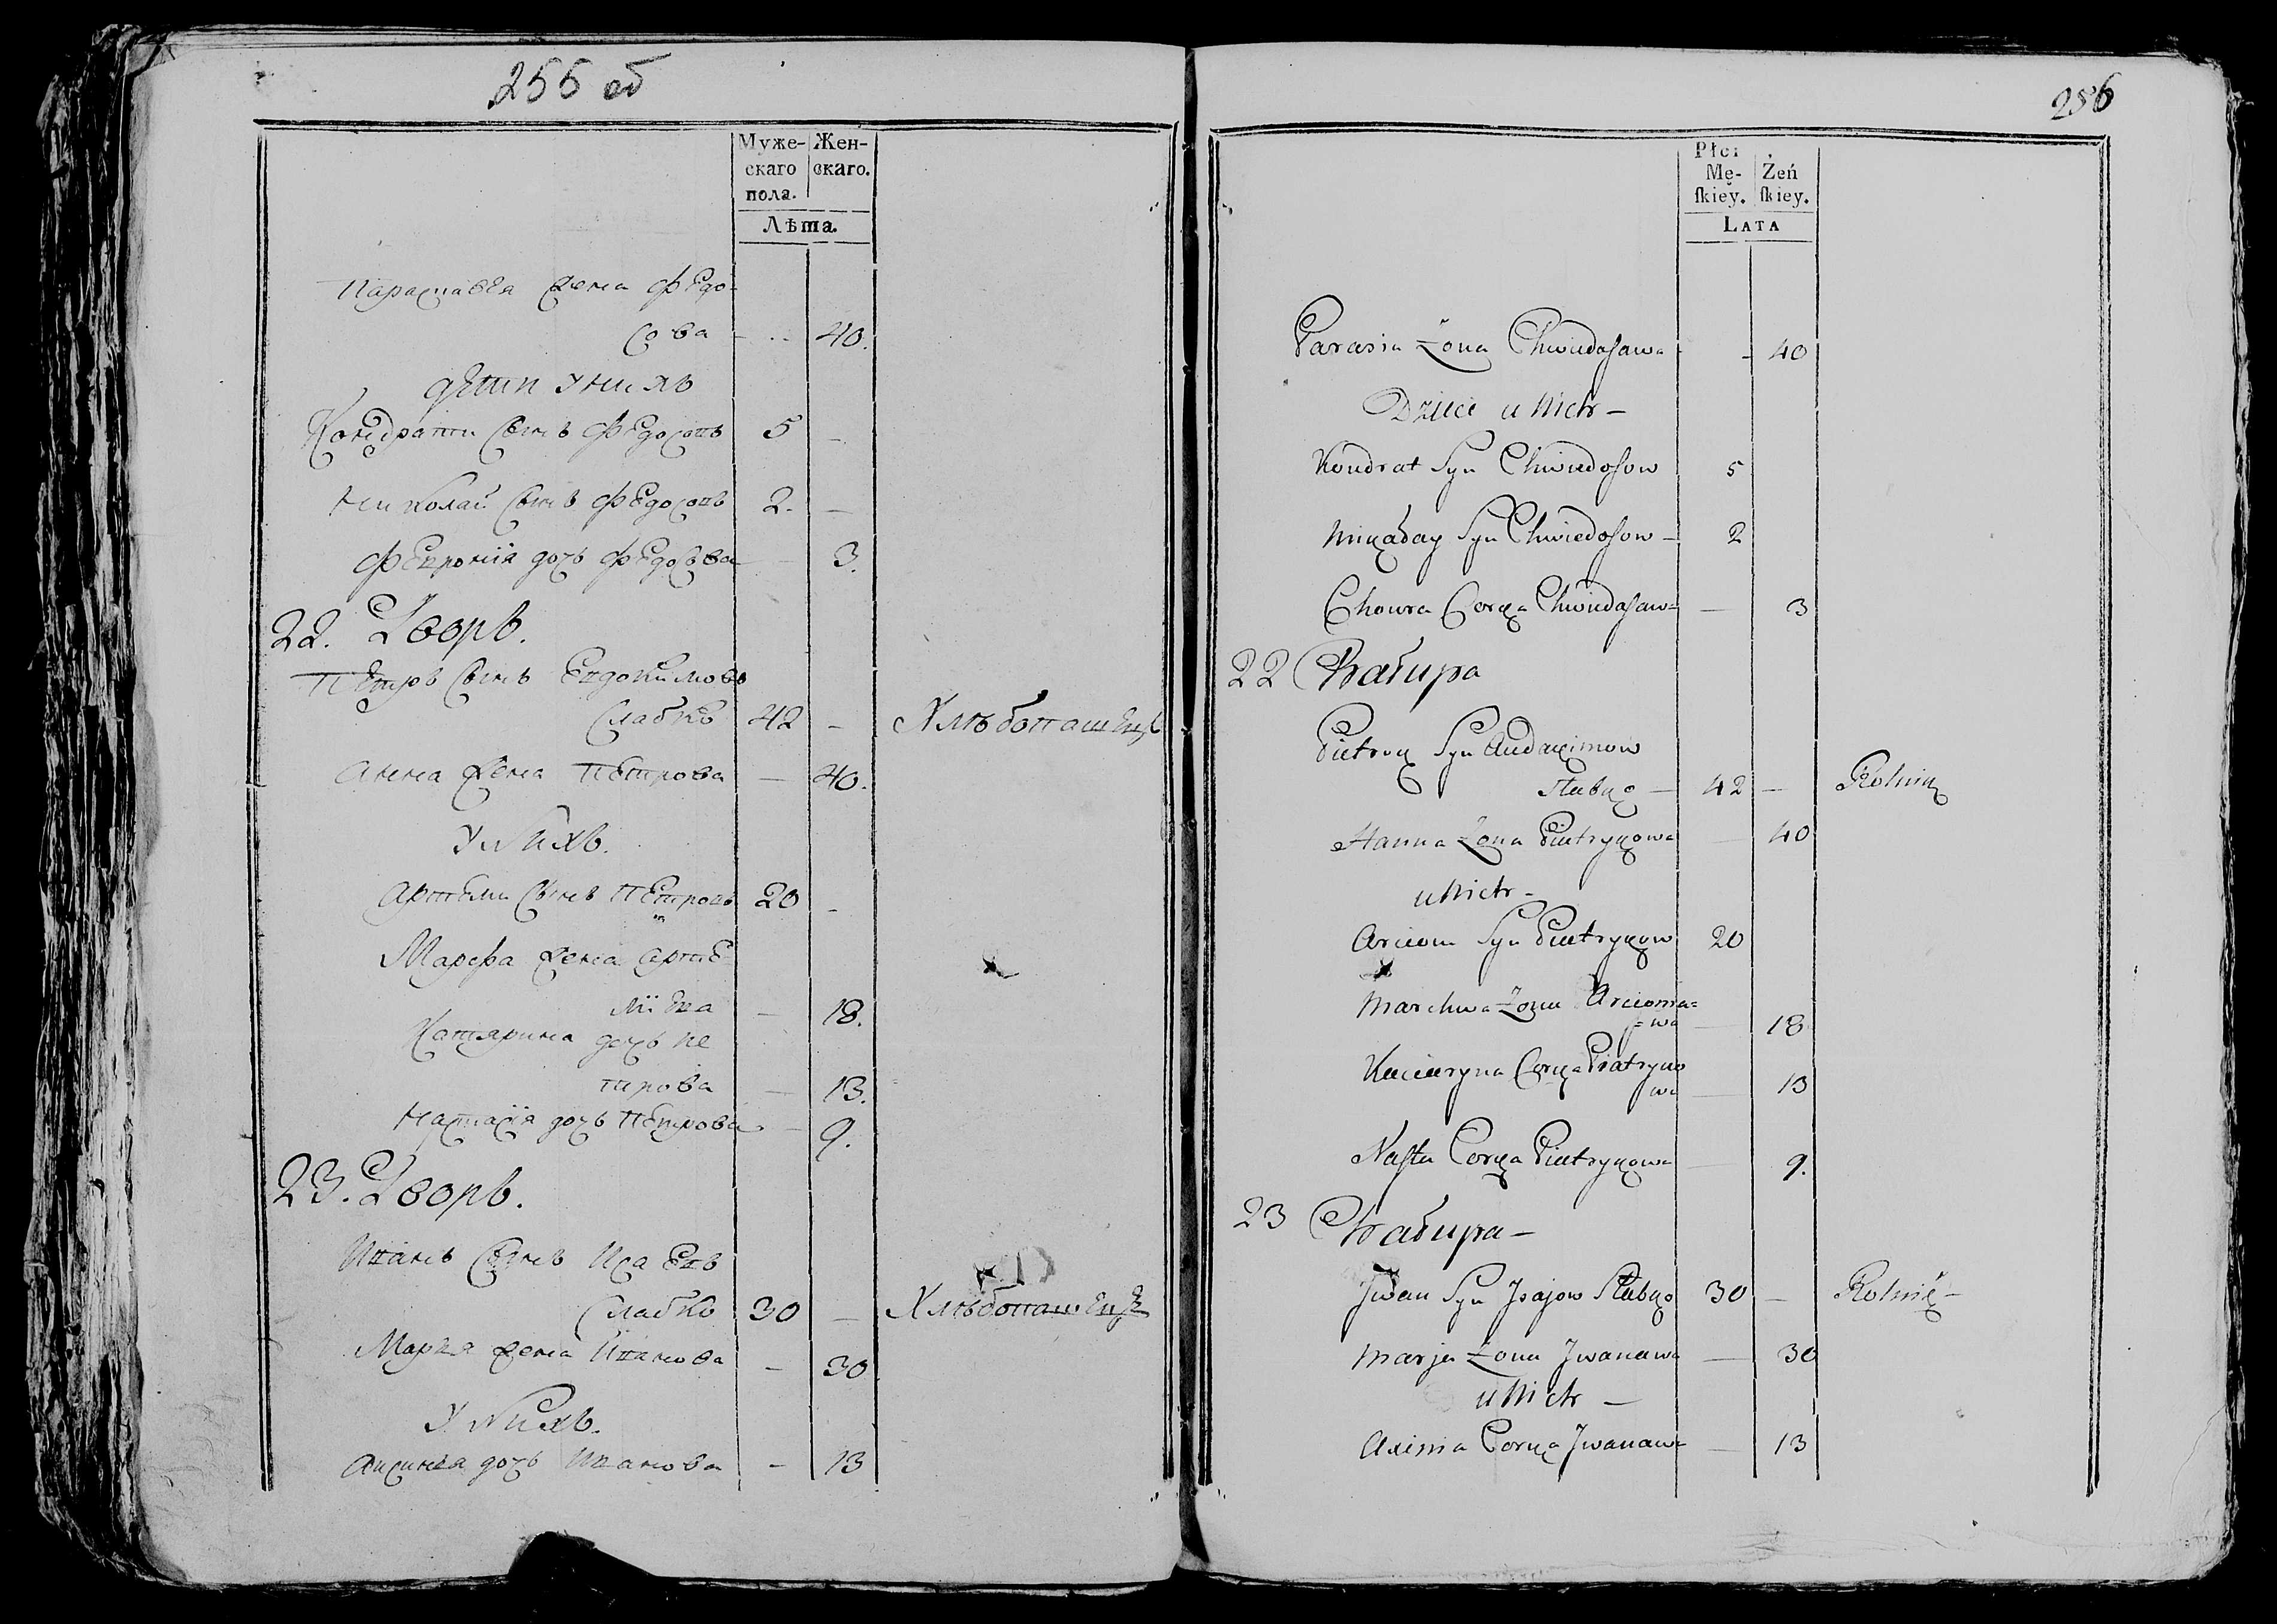 255 об
Муже-
скаго
пола.
Жен-
скаго.
Лѣта.
Параскавея жена Федо-
сова - .. 40.
дети у нихъ
Кондрати сынъ Федосовъ 5 -
Николай сынъ Федосовъ 2. -
Феврониїя дочь Федосова - 3.
22. Дворъ.
Петръ сынъ Евдокимовъ
Слабко 42 - Хлѣбопашецъ
Анна жена Петрова - 40.
У Нихъ.
Артеми сынъ Петровъ 20 -
Марфа жена Арте
мїева - 18.
Катярина дочь Пе
трова - 13.
Настасїя дочь Петрова - 9.
23. Дворъ.
Иванъ сынъ Исаевъ
Слабко 30 - Хлѣбопашецъ
Марея жена Иванова - 30
У Нихъ.
Аксинея дочь Иванова - 13
256
Płci
Mę-
ſkiey.
Żeń
ſkiey.
LATA
Parasia Żona Chwiedosawa - 40
Dzieci u Nich -
Kondrat Syn Chwiedosow 5
Mikałay Syn Chwiedosow - 2
Chowra Corka Chwiedasawa - 3
22 Chałupa
Pietruk Syn Audakimow
Słabko - 42 - Rolnik
Hanna Żona Pietrykowa - 40
u Nich -
Arciom Syn Pietrykow 20
Marchwa Żona Arciomia=
=wa - 18
Kaciaryna Corka Piatryko
wa - 13
Nasta Corka Pietrykowa - 9.
23 Chałupa -
Jwan Syn Jsajow Słabko 30 - Rolnik -
Marja Żona Jwanawa - 30
u Nich -
Axinia Corka Jwanawa - 13